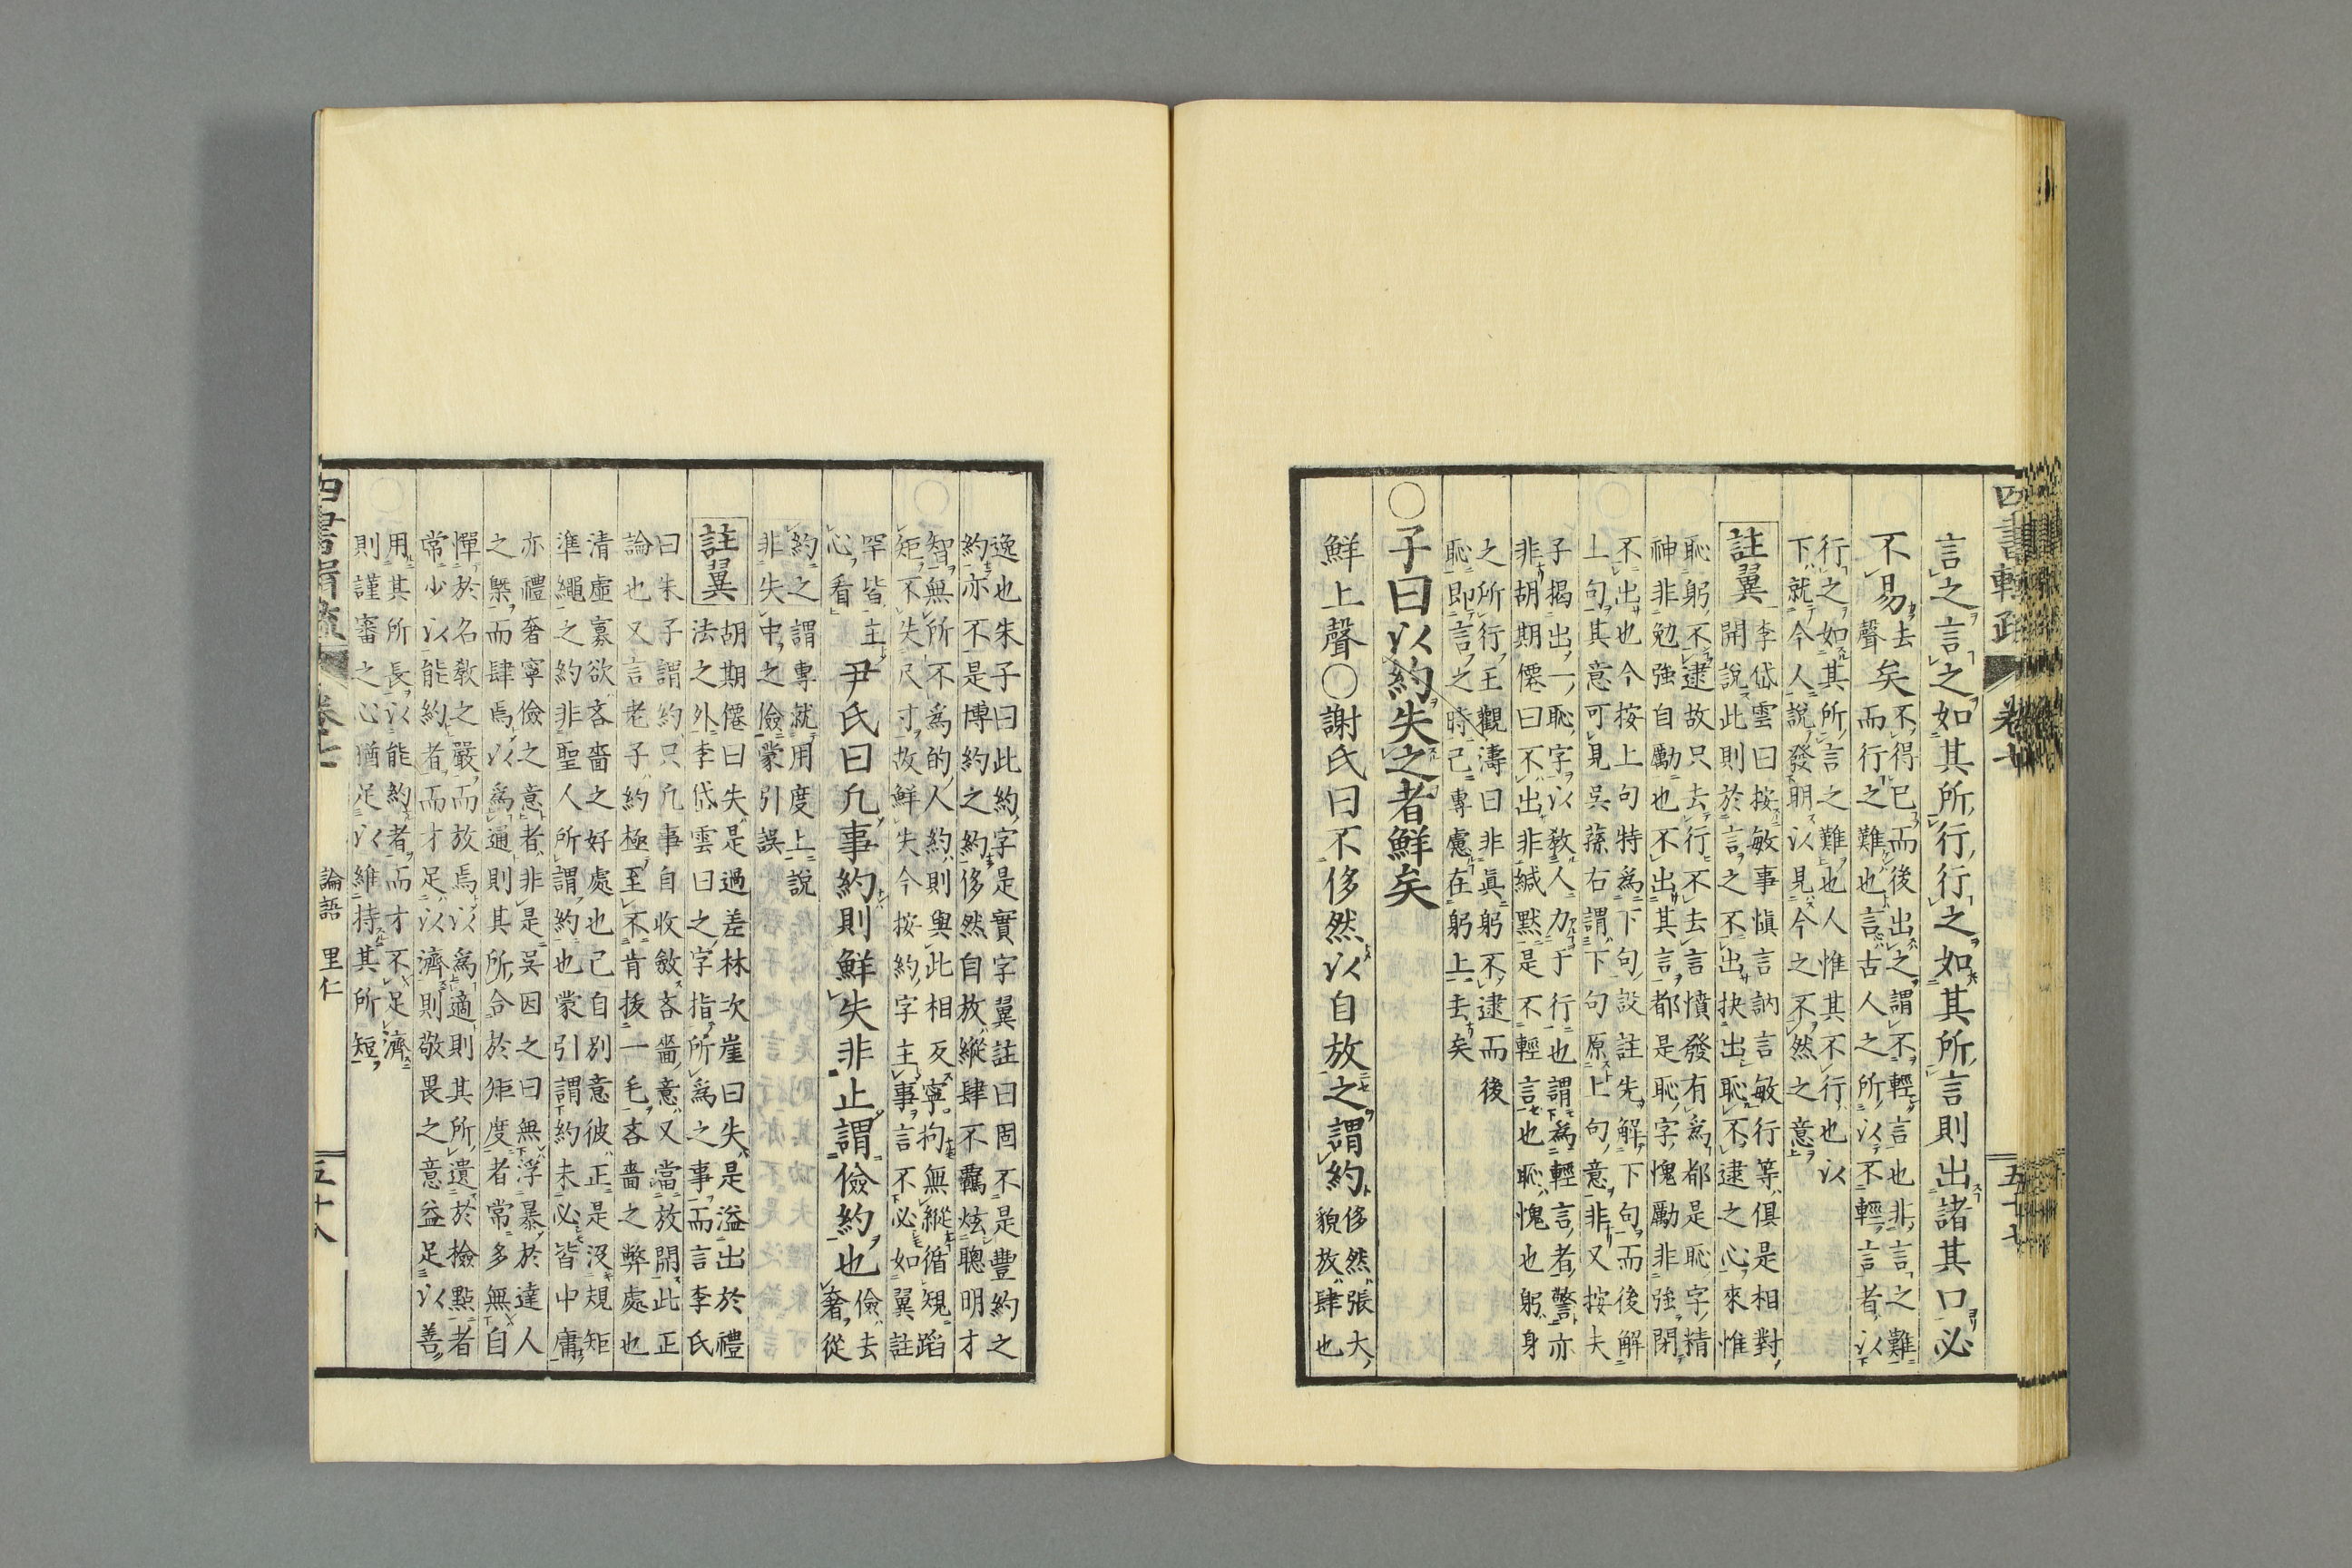 四書輯疏 卷七 五十七
言之言之如其所行行之如其所言則出諸其口必
不易去聲矣
不得已而後出之謂不輕言也非言之難
而行之難也言古人之所以不輕言者以
行之如其所言之難也人惟其不行也以
下就今人說發明以見今之不然之意
註翼
李岱雲曰按敏事愼言訥言敏行等俱是相對
開說此則於言之不出抉出恥不逮之心來惟
恥躬不逮故只去行不去言憤發有爲都是恥字精
神非勉強自勵也不出其言都是恥字愧勵非強閉
不出也今按上句特爲下句設註先解下句而後解
上句其意可見吳蓀右謂下句原上句意非又按夫
子揭出一恥字以敎人力于行也謂爲輕言者警亦
非胡期僊曰不出非緘默是不輕言也恥愧也躬身
之所行王觀濤曰非眞躬不逮而後
恥即言之時己專慮在躬上去矣
○子曰以約失之者鮮矣
鮮上聲○謝氏曰不侈然以自放之謂約
侈然張大
貌放肆也
逸也朱子曰此約字是實字翼註曰固不是豐約之
約亦不是博約之約侈然自放縱肆不羈炫聰明才
智無所不爲的人約則與此相反寧拘無縱循規蹈
矩不失尺寸故鮮失今按約字主事言不必如翼註
罕皆主
心看
尹氏曰凡事約則鮮失非止謂儉約也
儉去
奢從
約之謂專就用度上說
非失中之儉蒙引誤
註翼
胡期僊曰失是過差林次崖曰失是溢出於禮
法之外李岱雲曰之字指所爲之事而言李氏
曰朱子謂約只凡事自收斂吝嗇意又當放開此正
論也又言老子約極至不肯拔一毛吝嗇之弊處也
清虛寡欲吝嗇之好處也己自別意彼正是沒規矩
準繩之約非聖人所謂約也蒙引謂約未必皆中庸
亦禮奢寧儉之意者非是吳因之曰無浮暴於達人
之槩而肆焉以爲通則其所合於矩度者常多無自
憚於名敎之嚴而放焉以爲適則其所遺於撿點者
常少以能約者而才足以濟則敬畏之意益足以善
用其所長以能約者而才不足濟
則謹審之心猶足以維持其所短
四書輯疏 卷七 論語 里仁 五十八